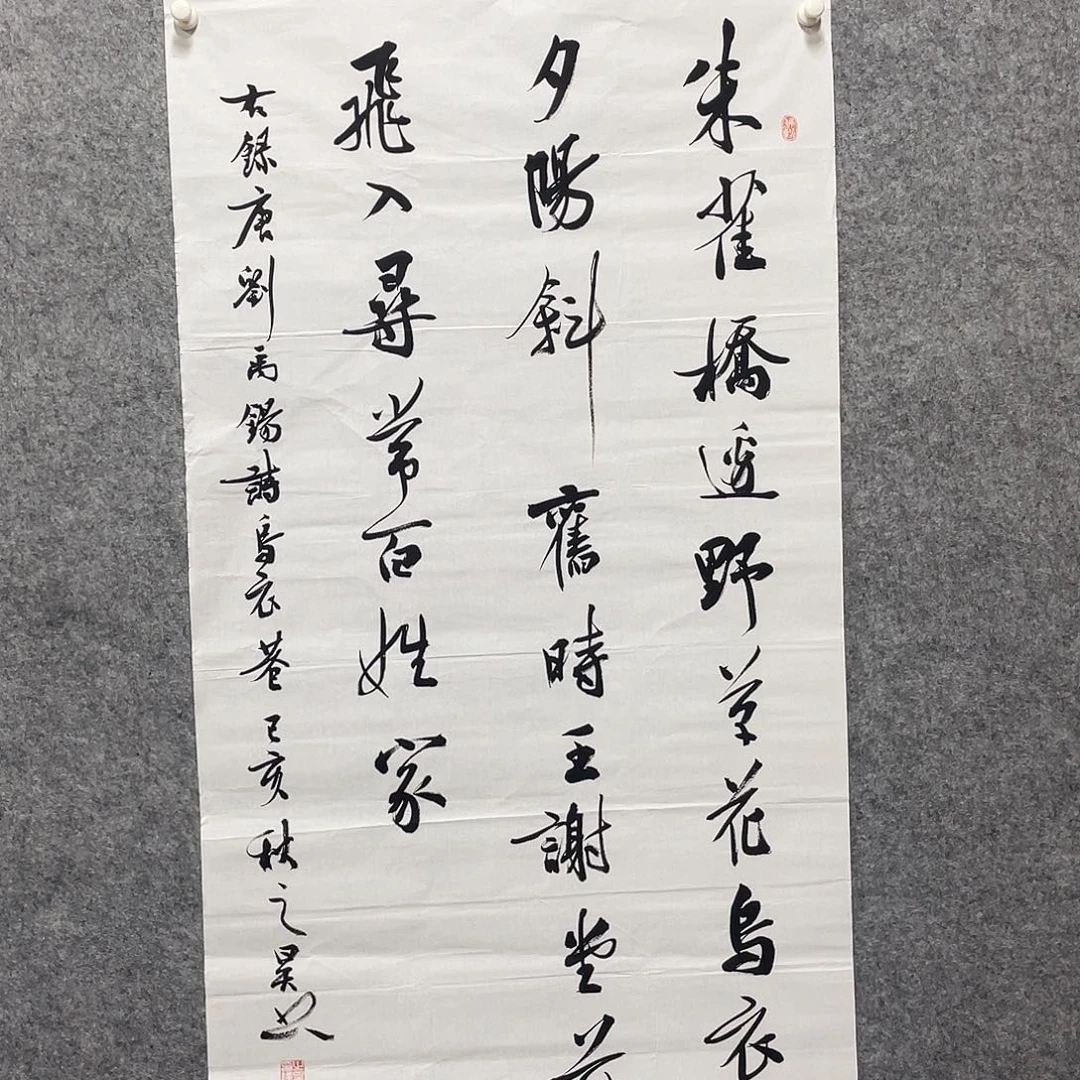 朱雀橋邊野草花烏衣
夕陽斜舊時王謝堂前
飛入尋常百姓家
右錄唐劉禹錫詩烏衣巷己亥秋之昊